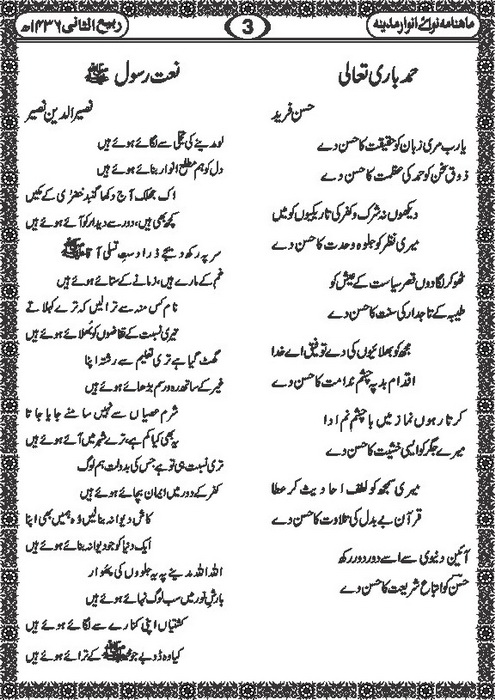 ماهنامه نوائے انوار مدینه
3
ربیع الثانی ۱۴۳۶ھ
حمد باری تعالی
حسن فرید
یارب مری زبان کو حقیقت کا حسن دے
ذوق سخن کو حمد کی عظمت کا حسن دے
دیکھوں نہ شرک و کفر کی تاریکیوں کو میں
میری نظر کو جلوہ وحدت کا حسن دے
ٹھوکر لگا دوں قصر سیاست کے عیش کو
طیبہ کے تاجدار کی سنت کا حسن دے
مجھ کو بھلائیوں کی دے توفیق اے خدا
اقدام بد پہ چشم ندامت کا حسن دے
کرتا رہوں نماز میں با چشم نم ادا
میرے جگر کو ایسی خشیت کا حسن دے
میری سمجھ کو لطف احادیث کر عطا
قرآن بے بدل کی تلاوت کا حسن دے
آئین دنیوی سے اسے دور دور رکھ
حسن کو اتباع شریعت کا حسن دے
نعت رسول ﷺ
نصیر الدین نصیر
لو مدینے کی تجلی سے لگائے ہوئے ہیں
دل کو ہم مطلع انوار بنائے ہوئے ہیں
اک جھلک آج دکھا گنبد خضریٰ کے مکیں
کچھ بھی ہیں، دور سے دیدار کو آئے ہوئے ہیں
سر پہ رکھ دیجے ذرا دست تسلی آقا ﷺ
غم کے مارے ہیں، زمانے کے ستائے ہوئے ہیں
نام کس منہ سے ترا لیں کہ ترے کہلاتے
تیری نسبت کے تقاضوں کو بھلائے ہوئے ہیں
گھٹ گیا ہے تری تعلیم سے رشتہ اپنا
غیر کے ساتھ رہ و رسم بڑھائے ہوئے ہیں
شرم عصیاں سے نہیں سامنے جایا جاتا
یہ بھی کیا کم ہے، ترے شہر میں آئے ہوئے ہیں
تری نسبت ہی تو ہے جس کی بدولت ہم لوگ
کفر کے دور میں ایمان بچائے ہوئے ہیں
کاش دیوانہ بنا لیں وہ ہمیں بھی اپنا
ایک دنیا کو جو دیوانہ بنائے ہوئے ہیں
اللہ اللہ مدینے پہ یہ جلووں کی پھوار
بارش نور میں سب لوگ نہائے ہوئے ہیں
کشتیاں اپنی کنارے سے لگائے ہوئے ہیں
کیا وہ ڈوبے جو محمد ﷺ کے ترائے ہوئے ہیں